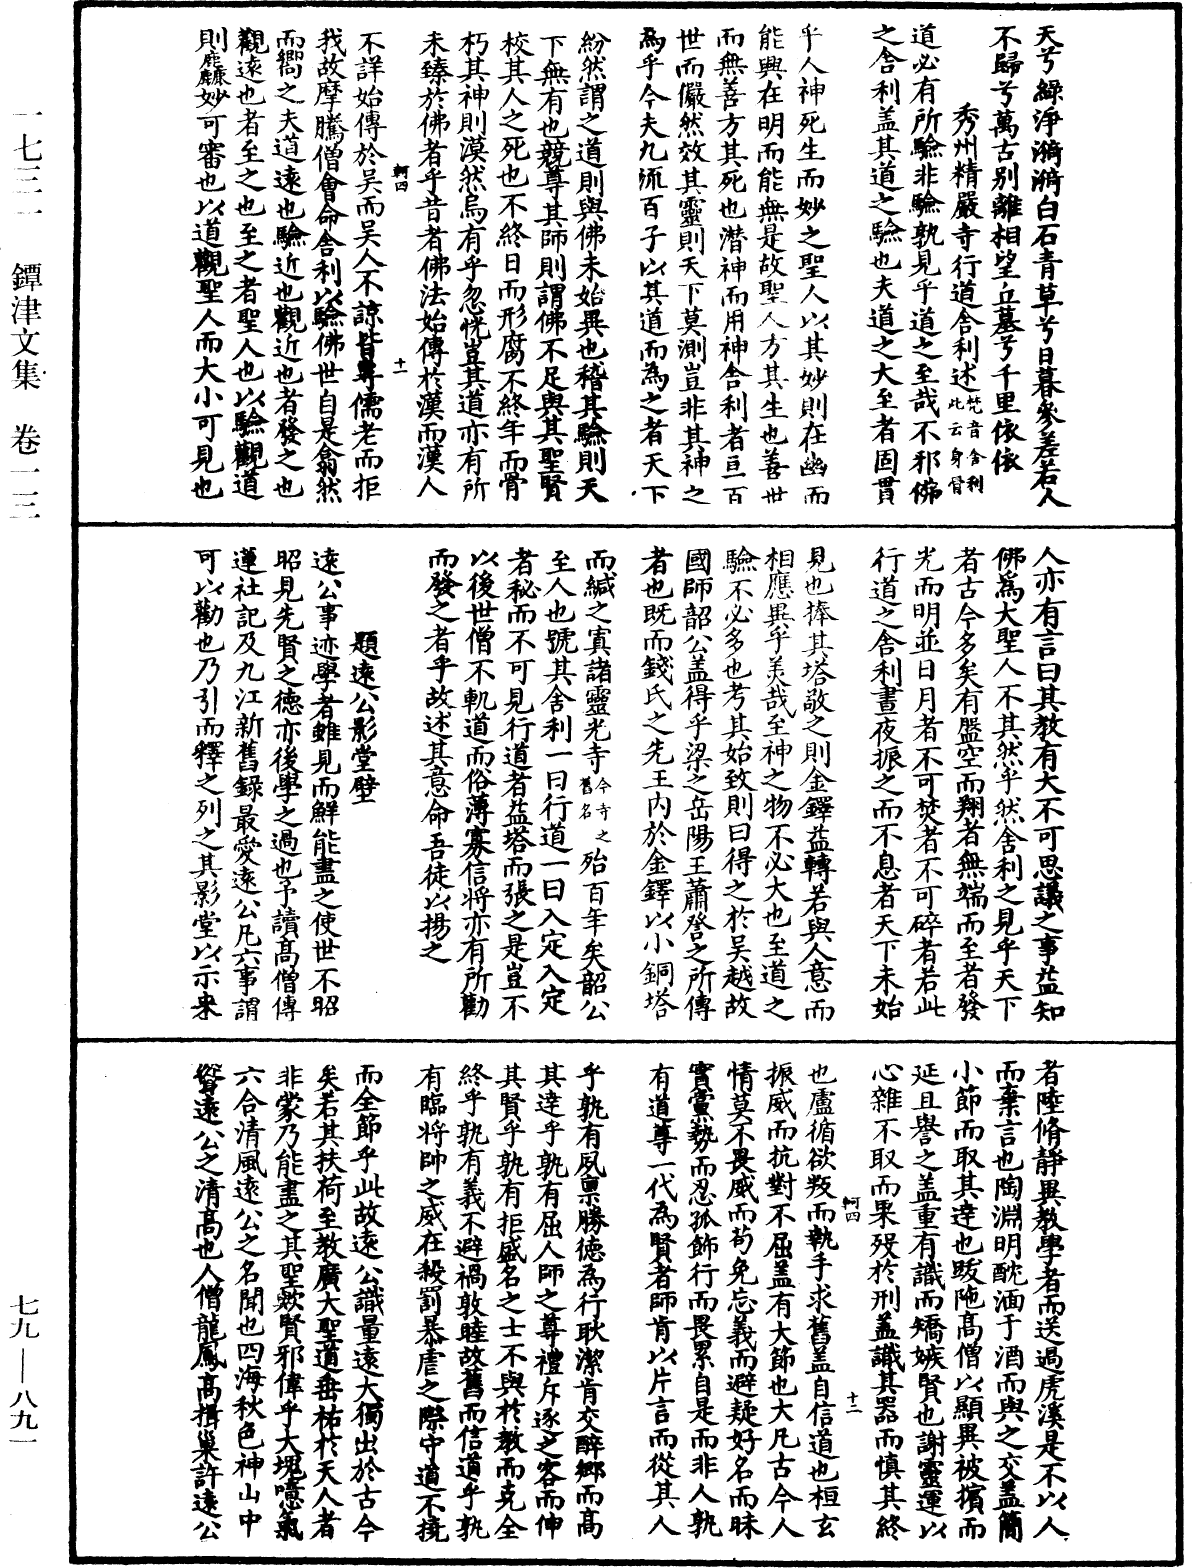 天兮綠淨漪漪白石青草兮日暮參差若人
不歸兮萬古別離相望丘墓兮千里依依
秀州精嚴寺行道舍利述梵音舍利此云身骨
道必有所驗非驗孰見乎道之至哉不邪佛
之舍利盖其道之驗也夫道之大至者固貫
乎人神死生而妙之聖人以其妙則在幽而
能興在明而能無是故聖人方其生也善世
而無善方其死也潜神而用神舍利者亘百
世而儼然效其靈則天下莫測豈非其神之
為乎今夫九流百子以其道而為之者天下
紛然謂之道則與佛未始異也稽其驗則天
下無有也競尊其師則謂佛不足與其聖賢
校其人之死也不終日而形腐不終年而骨
朽其神則漠然烏有乎忽恍豈其道亦有所
未臻於佛者乎昔者佛法始傳於漢而漢人
軻四 十一
不詳始傳於吴而吴人不諒皆尊儒老而拒
我故摩騰僧會命舍利以驗佛世自是翕然
而嚮之夫道遠也驗近也觀近也者發之也
觀遠也者至之也至之者聖人也以驗觀道
則麤妙可審也以道觀聖人而大小可見也
人亦有言曰其教有大不可思議之事益知
佛爲大聖人不其然乎然舍利之見乎天下
者古今多矣有盤空而翔者無端而至者發
光而明並日月者不可焚者不可碎者若此
行道之舍利晝夜振之而不息者天下未始
見也捧其塔敬之則金鐸益轉若與人意而
相應異乎美哉至神之物不必大也至道之
驗不必多也考其始致則曰得之於吴越故
國師韶公盖得乎梁之岳陽王蕭詧之所傳
者也既而錢氏之先王内於金鐸以小銅塔
而緘之寘諸靈光寺今寺之舊名殆百年矣韶公
至人也號其舍利一曰行道一曰入定入定
者秘而不可見行道者益塔而張之是豈不
以後世僧不軌道而俗薄寡信將亦有所勸
而發之者乎故述其意命吾徒以揚之
題遠公影堂壁
遠公事迹學者雖見而鮮能盡之使世不昭
昭見先賢之德亦後學之過也予讀高僧傳
蓮社記及九江新舊錄最愛遠公凡六事謂
可以勸也乃引而釋之列之其影堂以示来
者陸脩靜異教學者而送過虎溪是不以人
而棄言也陶淵明酖湎于酒而與之交盖簡
小節而取其達也跋陁高僧以顯異被擯而
延且譽之盖重有識而矯嫉賢也謝靈運以
心雜不取而果殁於刑盖識其器而慎其終
也盧循欲叛而執手求舊盖自信道也桓玄
軻四 十二
振威而抗對不屈盖有大節也大凡古今人
情莫不畏威而苟免忘義而避疑好名而昧
實黨勢而忍孤飾行而畏累自是而非人孰
有道尊一代為賢者師肯以片言而從其人
乎孰有夙禀勝德為行耿潔肯交醉鄉而高
其達乎孰有屈人師之尊禮斥逐之客而伸
其賢乎孰有拒盛名之士不與於教而克全
終乎孰有義不避禍敦睦故舊而信道乎孰
有臨將帥之威在殺罰暴虐之際守道不撓
而全節乎此故遠公識量遠大獨出於古今
矣若其扶荷至教廣大聖道垂祐於天人者
非蒙乃能盡之其聖歟賢邪偉乎大塊噫氣
六合清風遠公之名聞也四海秋色神山中
聳遠公之清高也人僧龍鳳高揖巢許遠公
一七三一 鐔津文集 卷一三
七九—八九一